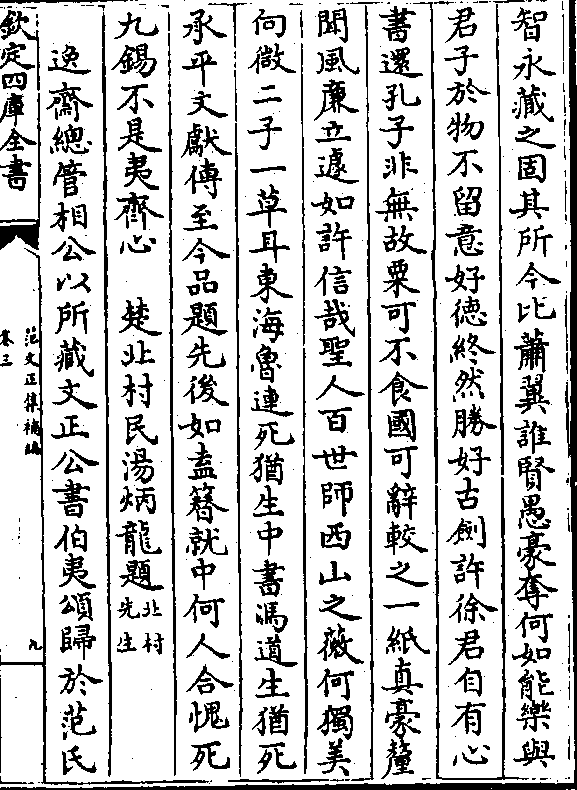 智永藏之固其所今比蕭翼誰賢愚豪奪何如能樂與
君子於物不留意好德終然勝好古劍許徐君自有心
書還孔子非無故粟可不食國可辭較之一紙真豪釐
聞風廉立遽如許信哉聖人百世師西山之薇何獨美
向微二子一草耳東海魯連死猶生中書馮道生猶死
承平文獻傳至今品題先後如盍簪就中何人合愧死
九錫不是夷齊心　楚北村民湯炳龍題北村先生
逸齋總管相公以所藏文正公書伯夷頌歸於范氏
欽定四庫全書
范文正集補編
卷三
九